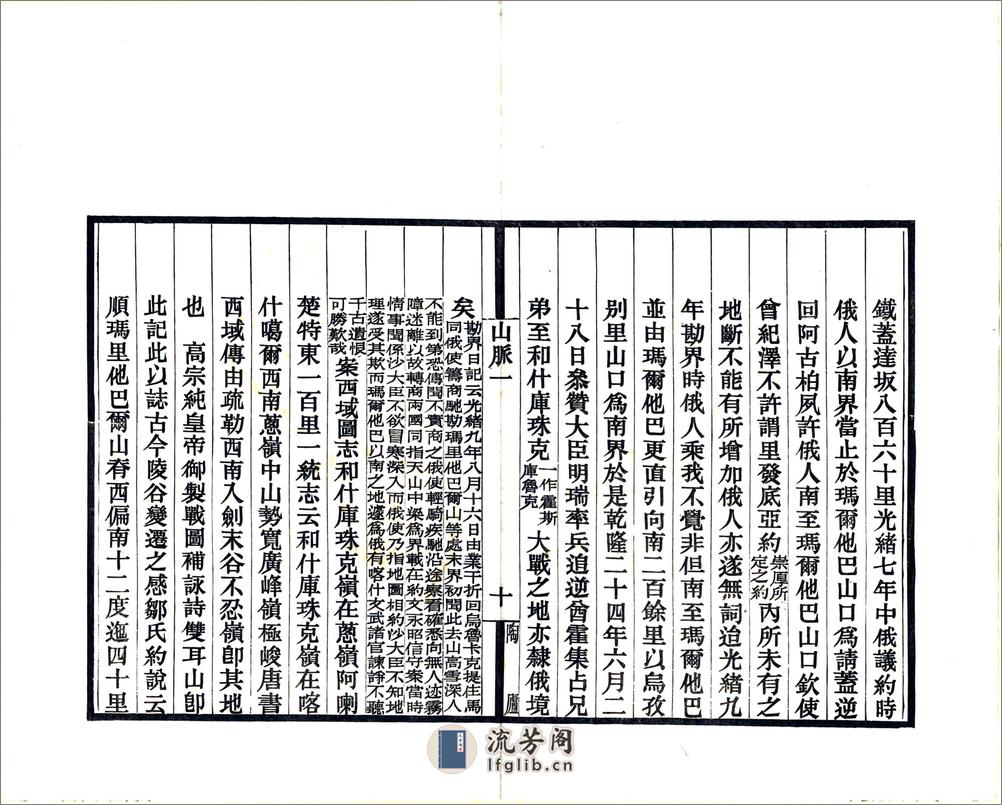 鐵蓋達坂八百六十里光緒七年中俄議約時
俄人以南界當止於瑪爾他巴山口為請蓋逆
回阿古柏夙許俄人南至瑪爾他巴山口欽使
曾紀澤不許謂里發底亞約崇厚所定之約內所未有之
地斷不能有所增加俄人亦遂無詞迨光緒九
年勘界時俄人乘我不覺非但南至瑪爾他巴
並由瑪爾他巴更直引向南二百餘里以烏孜
别里山口為南界於是乾隆二十四年六月二
十八日叅贊大臣明瑞率兵追逆酋霍集占兄
弟至和什庫珠克一作霍斯庫魯克大戰之地亦隸俄境
山脈一
十
陶廬
矣勘界日記云光緒九年八月十六日由業干折回烏魯卡克提住馬
同俄使籌商馳勘瑪里他巴爾山等處末界初聞此去山高雪深人
不能到第恐傳聞不實商之俄使輕騎疾馳沿途察看確悉向無人迹霧
障迷離以故轉商兩國同指天山中梁為界載在約文永昭信守案當時
情事聞係沙大臣不欲冒寒深入而俄使乃指地圖相約沙大臣不知地
理遂受其欺而瑪爾他巴以南之地遽為俄有喀什文武諸官諫諍不聽
千古遺恨可勝歎哉案西域圖志和什庫珠克嶺在蔥嶺阿喇
楚特東一百里一統志云和什庫珠克嶺在喀
什噶爾西南蔥嶺中山勢寬廣峰嶺極峻唐書
西域傳由疏勒西南入劍末谷不忍嶺卽其地
也　高宗純皇帝御製戰圖補詠詩雙耳山卽
此記此以誌古今陵谷變遷之感鄒氏約說云
順瑪里他巴爾山脊西偏南十二度迤四十里
流芳阁
lfglib.cn